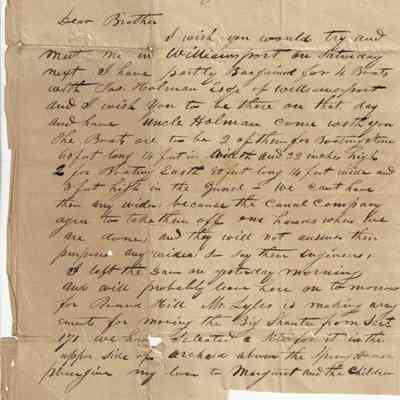 Dear Brother
I wish you would try and
meet me in Williamsport on Saturday
next I have partly Bargained for 4 Boats
with Jas. Holman Esqr of Williamsport
and I wish you to be there on that day
and have Uncle Holman come with you
The Boats are to be 2 of them for Boating stone
60 feet long 14 feet in width and 22 inches high
2 for Boating Earth 50 feet long 14 feet wide and
3 feet high in the Gunel - We cant have
them any wider because the Canal Company
agree to take them off our hands when we
are done, and they will not answer their
purpose any wider so say their engineers,
I left the Dam on yesterday morning
and will probably leave here on to morrow
for Hill Mr. Lyles is making
for moving the Big Shantee from Sect
171 we have selected a Site for it in the
upper side of orchard above the Spring House
please give my love to Margaret and the Children